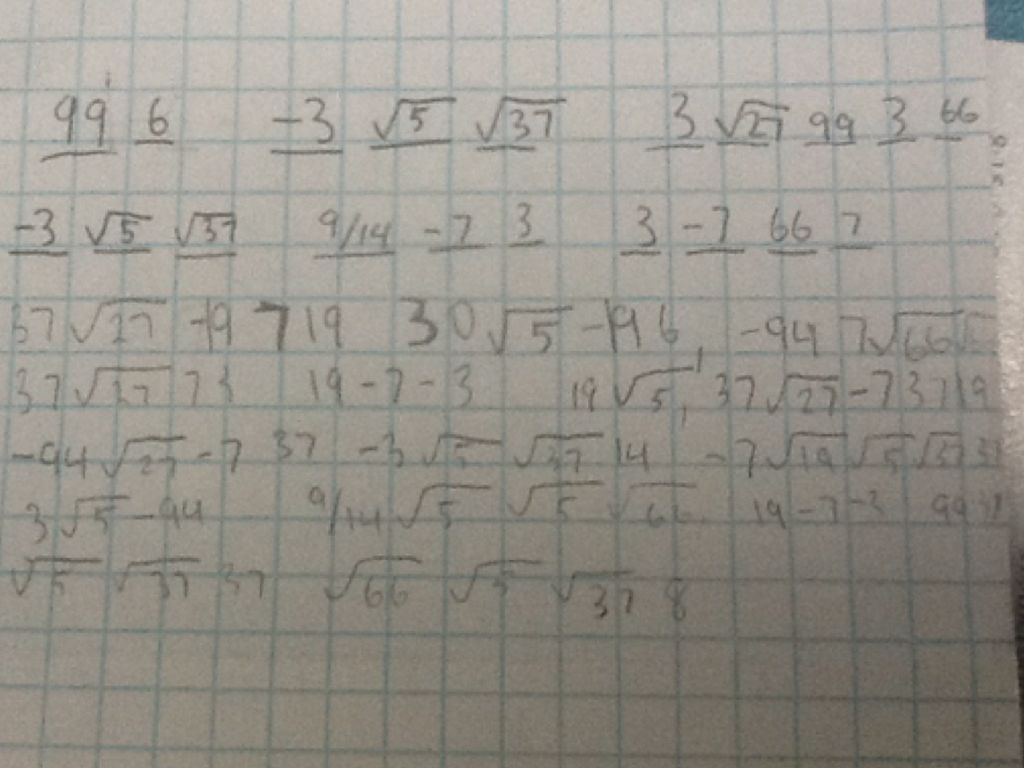 99 6 -3 √5 √37 3 √27 99 3 66
-3 √5 √37 9/14 -7 3 3 -7 66 7
37 √27 -19 7 19 30 √5 -196, -94 7 √66
37 √27 73 19 -7 -3 19 √5, 37 √27 -7 37 19
-94 √27 -7 37 -3 √5 √37 14 -7 √19 √5 √37
3 √5 -94 9/14 √5 √5 √66 19 -7 -3 99
√5 √37 37 √66 √5 √37 8